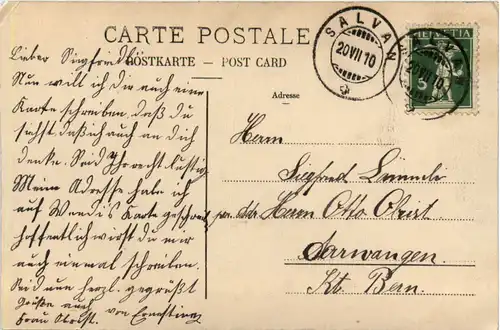 CARTE POSTALE
POSTKARTE — POST CARD
Adresse
SALVAN
20 VII 10
HELVETIA
5
SALVAN
20 VII 10
Lieber Siegfriedli
Nun will ich dir auch eine
Karte schreiben, daß du
siehst daß ich auch an dich
denke. Seid Ihr recht lustig
Meine Adresse habe ich
auf Karte geschrieben
Hoffentlich wirst du mir
auch einmal schreiben.
Seid nun herzl. gegrüßt
von Ernst
Grüße auch
Frau Obrist.
Herrn
Siegfried Lümmle
per Adr. Herrn Otto Obrist
Aarwangen.
Kt. Bern.